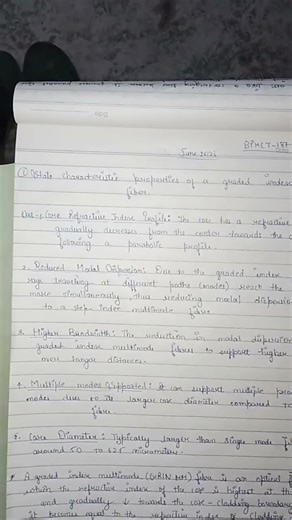 BPHCT-137
June 2021
① State characteristic properties of a graded index
fibre.
Ans - 1. Core Refractive Index Profile: The core has a refractive
gradually decreases from the center towards the
following a parabolic profile.
2. Reduced Modal Dispersion: Due to the graded index
rays traveling at different paths (modes) reach the
more simultaneously, thus reducing modal dispersion
to a step-index multimode fibre.
3. Higher Bandwidth: The reduction in modal dispersion
graded index multimode fibres to support higher
over longer distances.
4. Multiple modes supported: it can support multiple
modes due to its larger core diameter compared to
fibre.
5. Core Diameter: Typically larger than single mode
around 50 to 62.5 micrometers.
A graded index multimode (GRIN MM) fibre is an optical
which the refractive index of the core is highest at the
and gradually ↓ towards the core-cladding boundary
it becomes equal to the refractive index of cladding